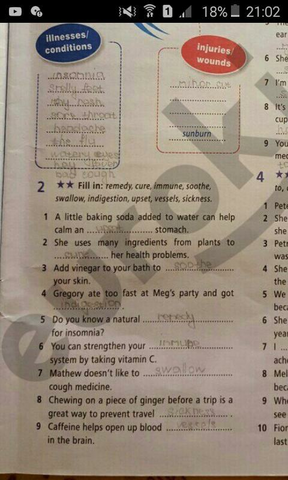 18% 21:02
illnesses/
conditions
injuries/
wounds
insomnia
sore throat
headache
sunburn
2 ★★ Fill in: remedy, cure, immune, soothe,
swallow, indigestion, upset, vessels, sickness.
1 A little baking soda added to water can help
calm an upset stomach.
2 She uses many ingredients from plants to
cure her health problems.
3 Add vinegar to your bath to soothe
your skin.
4 Gregory ate too fast at Meg's party and got
indigestion.
5 Do you know a natural remedy
for insomnia?
6 You can strengthen your immune
system by taking vitamin C.
7 Mathew doesn't like to swallow
cough medicine.
8 Chewing on a piece of ginger before a trip is a
great way to prevent travel sickness.
9 Caffeine helps open up blood vessels
in the brain.
6 She
7 I'm
8 It's
cup
9 You
4 ★
to,
1 Pete
2 She
she
3 Petr
was
4 She
the
5 We
beca
6 She
year
7 I
ache
8 Mel
beca
9 Whe
see
10 Fior
last